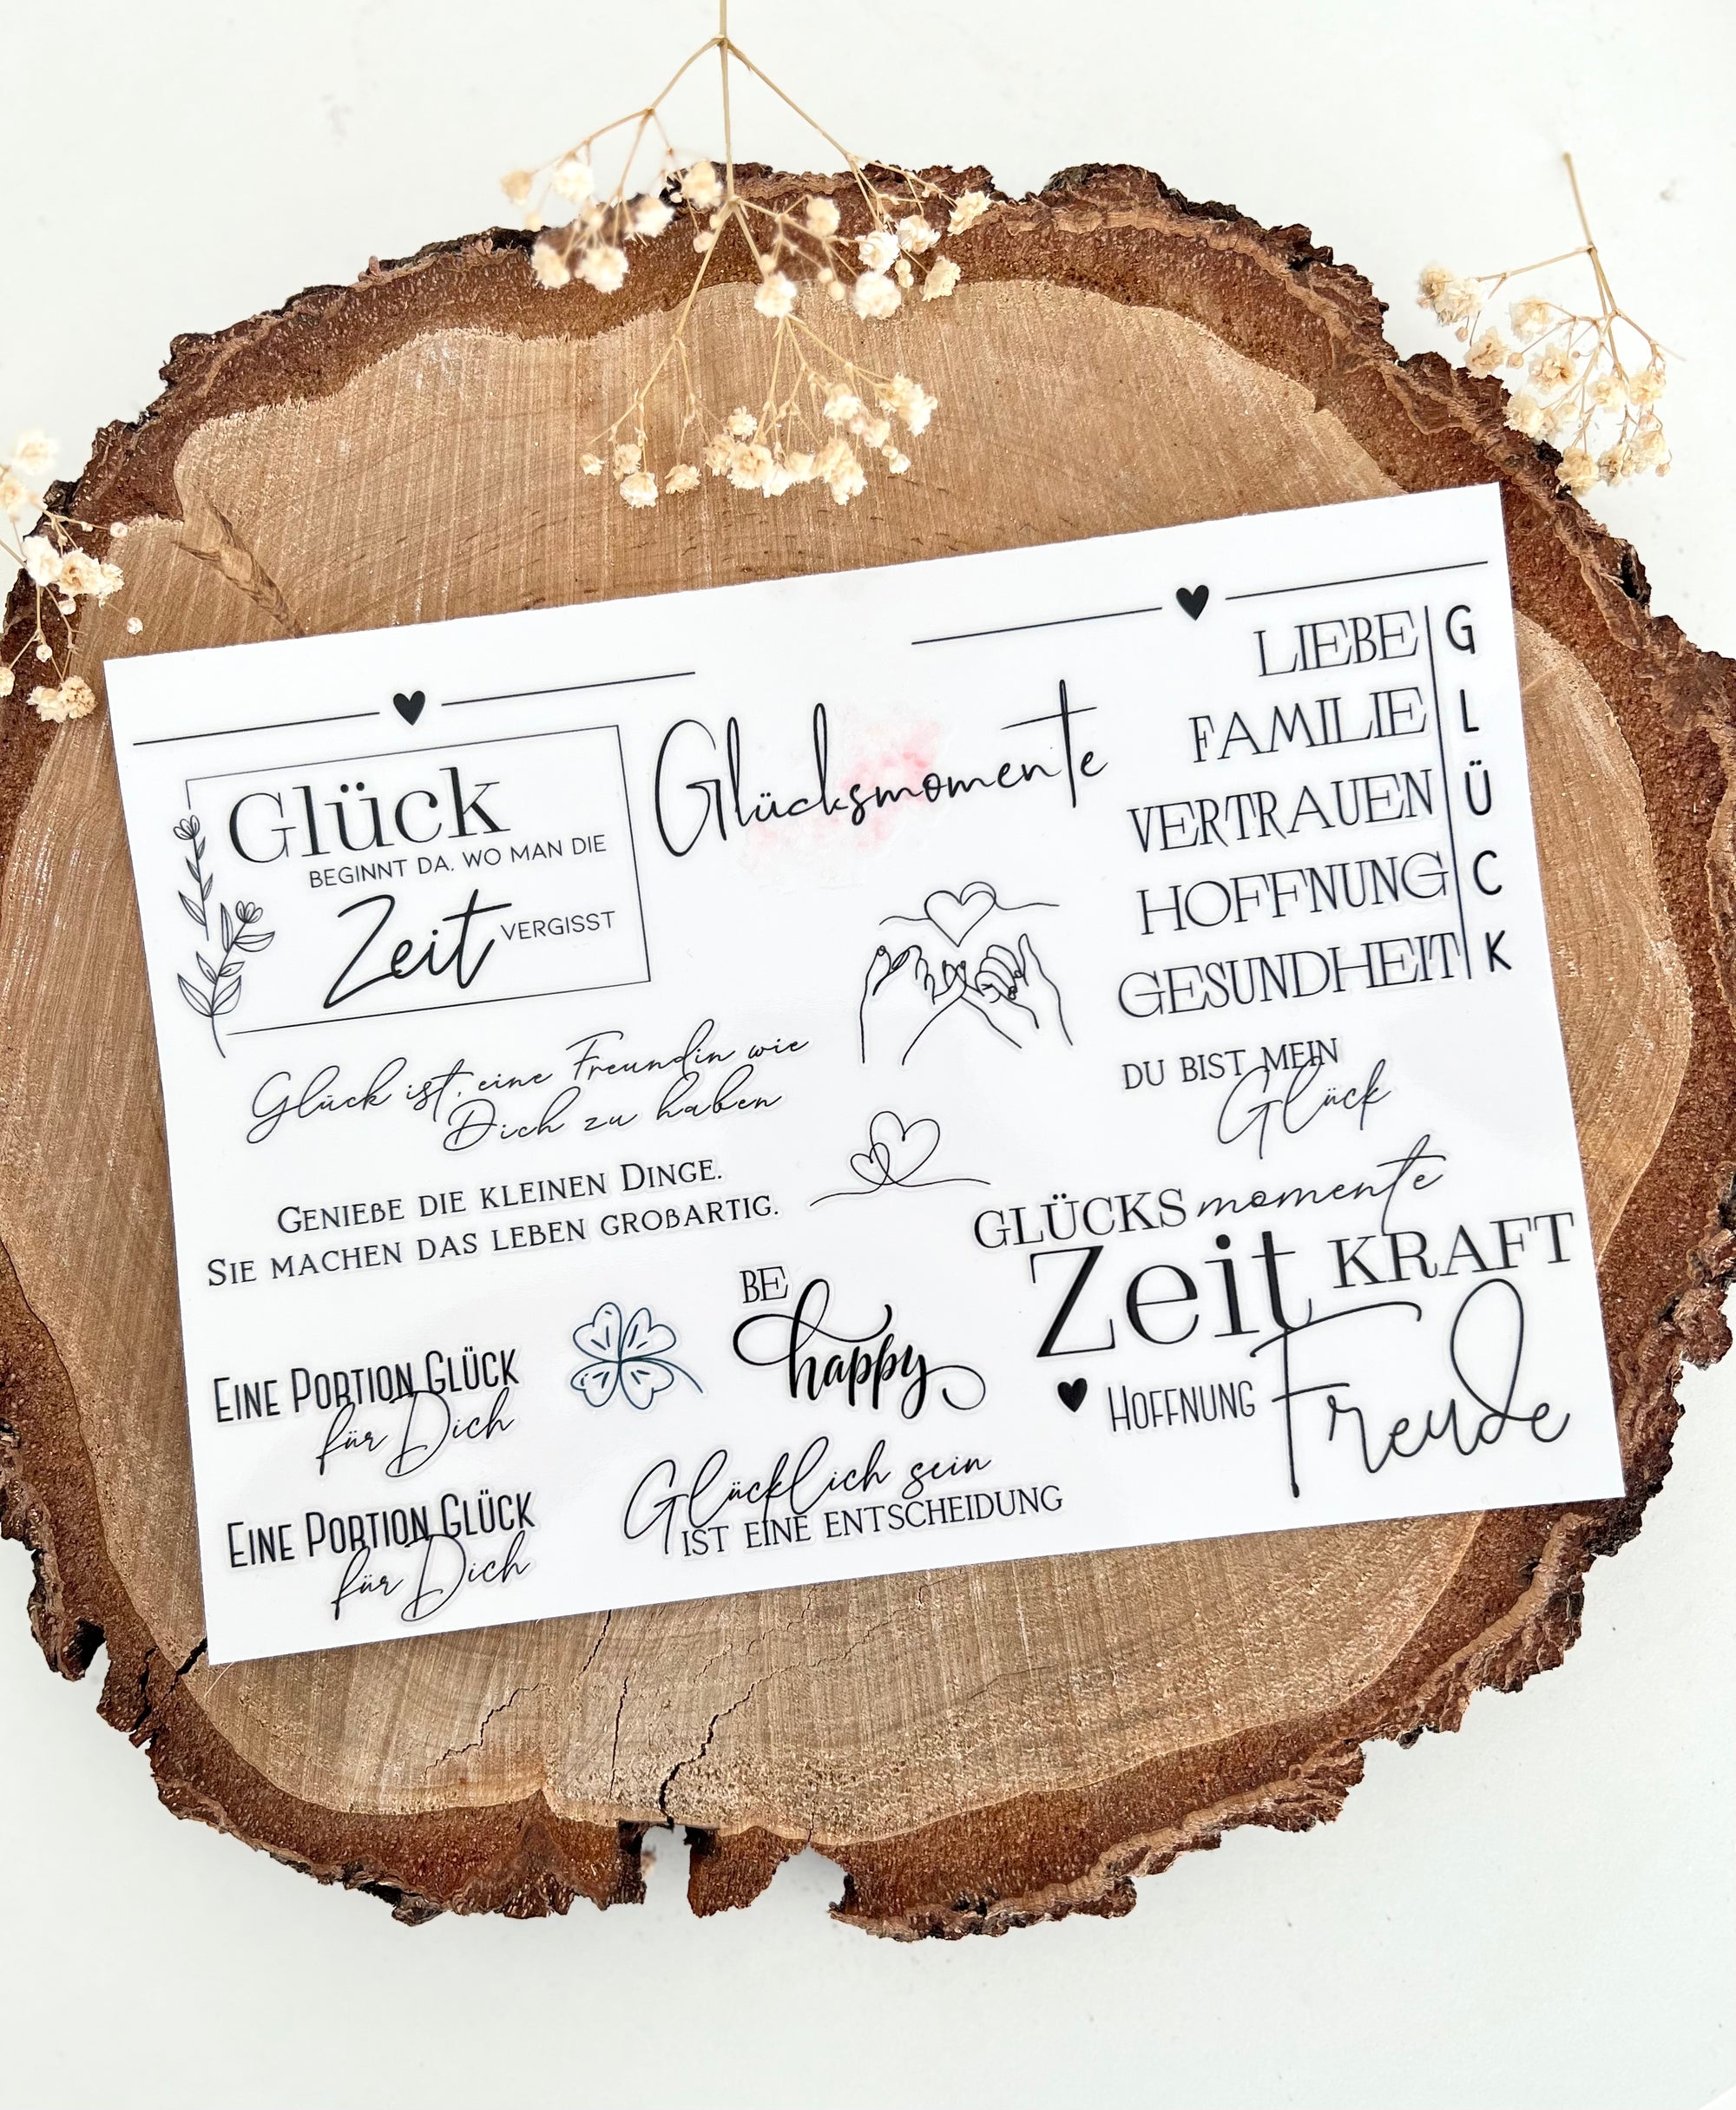 Glück
BEGINNT DA, WO MAN DIE
Zeit VERGISST
Glücksmomente
LIEBE | G
FAMILIE | L
VERTRAUEN | Ü
HOFFNUNG | C
GESUNDHEIT | K
Glück ist, eine Freundin wie
Dich zu haben
DU BIST MEIN
Glück
GENIEßE DIE KLEINEN DINGE.
SIE MACHEN DAS LEBEN GROßARTIG.
GLÜCKS momente
Zeit KRAFT
HOFFNUNG Freude
EINE PORTION GLÜCK
für Dich
BE
happy
EINE PORTION GLÜCK
für Dich
Glücklich sein
IST EINE ENTSCHEIDUNG